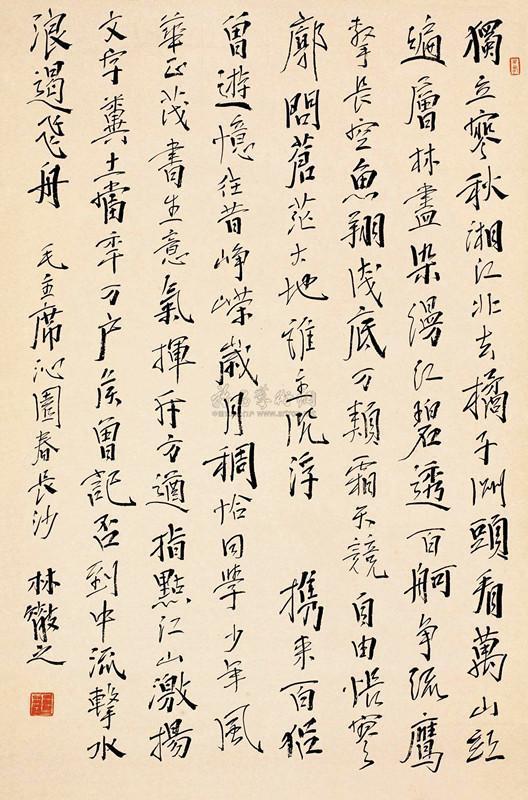 獨立寒秋湘江北去橘子洲頭看萬山紅
遍層林盡染漫江碧透百舸爭流鷹
擊長空魚翔淺底万類霜天競自由悵寥
廓問蒼茫大地誰主沉浮 攜來百侶
曾遊憶往昔崢嶸歲月稠恰同學少年風
華正茂書生意氣揮斥方遒指點江山激揚
文字糞土當年万户侯曾記否到中流擊水
浪遏飛舟 毛主席沁園春長沙 林散之